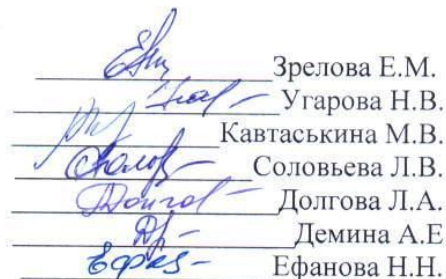 Зрелова Е.М.
Угарова Н.В.
Кавтаськина М.В.
Соловьева Л.В.
Долгова Л.А.
Демина А.Е
Ефанова Н.Н.